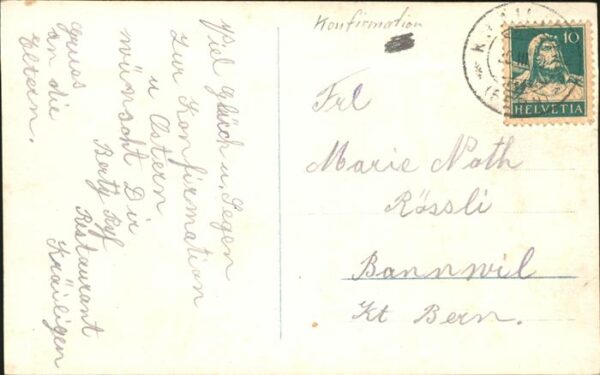 Konfirmation
10
HELVETIA
Frl
Marie Noth
Rössli
Bannwil
Kt Bern.
Viel Glück u. Segen
zur Konfirmation
u Ostern
wünscht Dir
Berty Ryf
Restaurant
Kräiligen
Gruss
an die
Eltern.